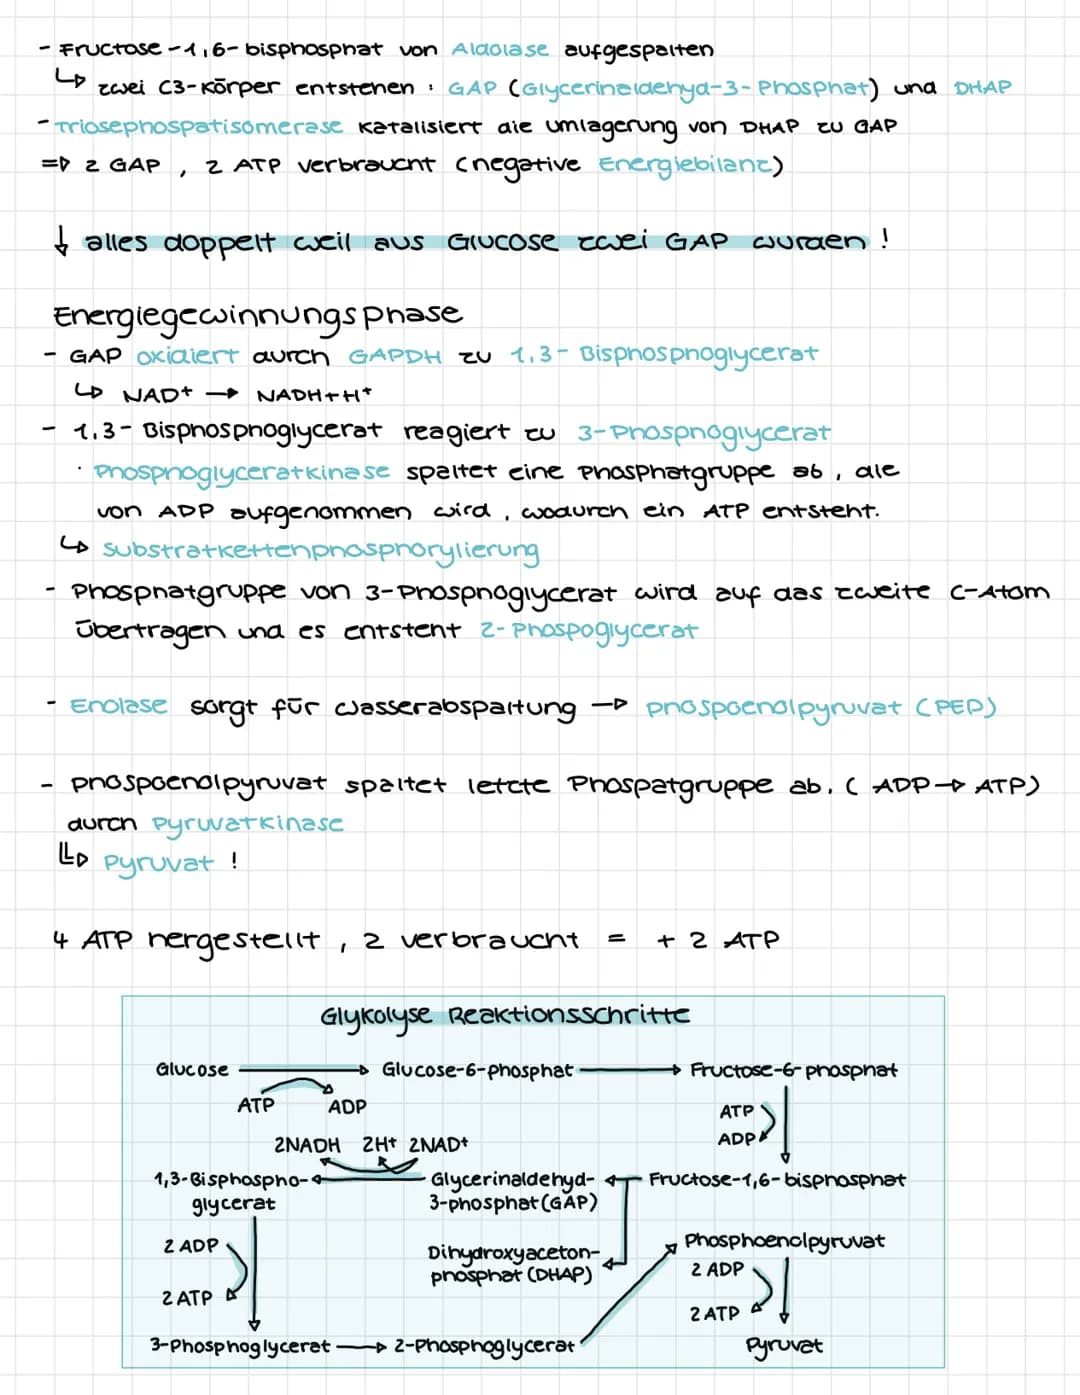 - Fructose-1,6-bisphosphat von Aldolase aufgespalten
↳ zwei C3-Körper entstehen : GAP (Glycerinaldehyd-3-Phosphat) und DHAP
- Triosephospatisomerase katalisiert die Umlagerung von DHAP zu GAP
=> 2 GAP , 2 ATP verbraucht (negative Energiebilanz)
↓ alles doppelt weil aus Glucose zwei GAP wurden !
Energiegewinnungsphase
- GAP oxidiert durch GAPDH zu 1,3-Bisphosphoglycerat
↳ NAD+ → NADH+H+
- 1,3-Bisphosphoglycerat reagiert zu 3-Phosphoglycerat
· Phosphoglyceratkinase spaltet eine Phosphatgruppe ab, die
von ADP aufgenommen wird, wodurch ein ATP entsteht.
↳ Substratkettenphosphorylierung
- Phosphatgruppe von 3-Phosphoglycerat wird auf das zweite C-Atom
übertragen und es entsteht 2-Phospoglycerat
- Enolase sorgt für Wasserabspaltung → phospoenolpyruvat (PEP)
- phospoenolpyruvat spaltet letzte Phospatgruppe ab. (ADP→ATP)
durch Pyruvatkinase
↳ Pyruvat !
4 ATP hergestellt , 2 verbraucht = + 2 ATP
Glykolyse Reaktionsschritte
Glucose → Glucose-6-phosphat → Fructose-6-phosphat
ATP ADP
ATP
ADP
2NADH 2H+ 2NAD+
1,3-Bisphospho-
glycerat
Glycerinaldehyd-
3-phosphat(GAP)
Fructose-1,6-bisphosphat
2 ADP
2 ATP
Dihydroxyaceton-
phosphat (DHAP)
Phosphoenolpyruvat
2 ADP
2 ATP
3-Phosphoglycerat → 2-Phosphoglycerat
Pyruvat